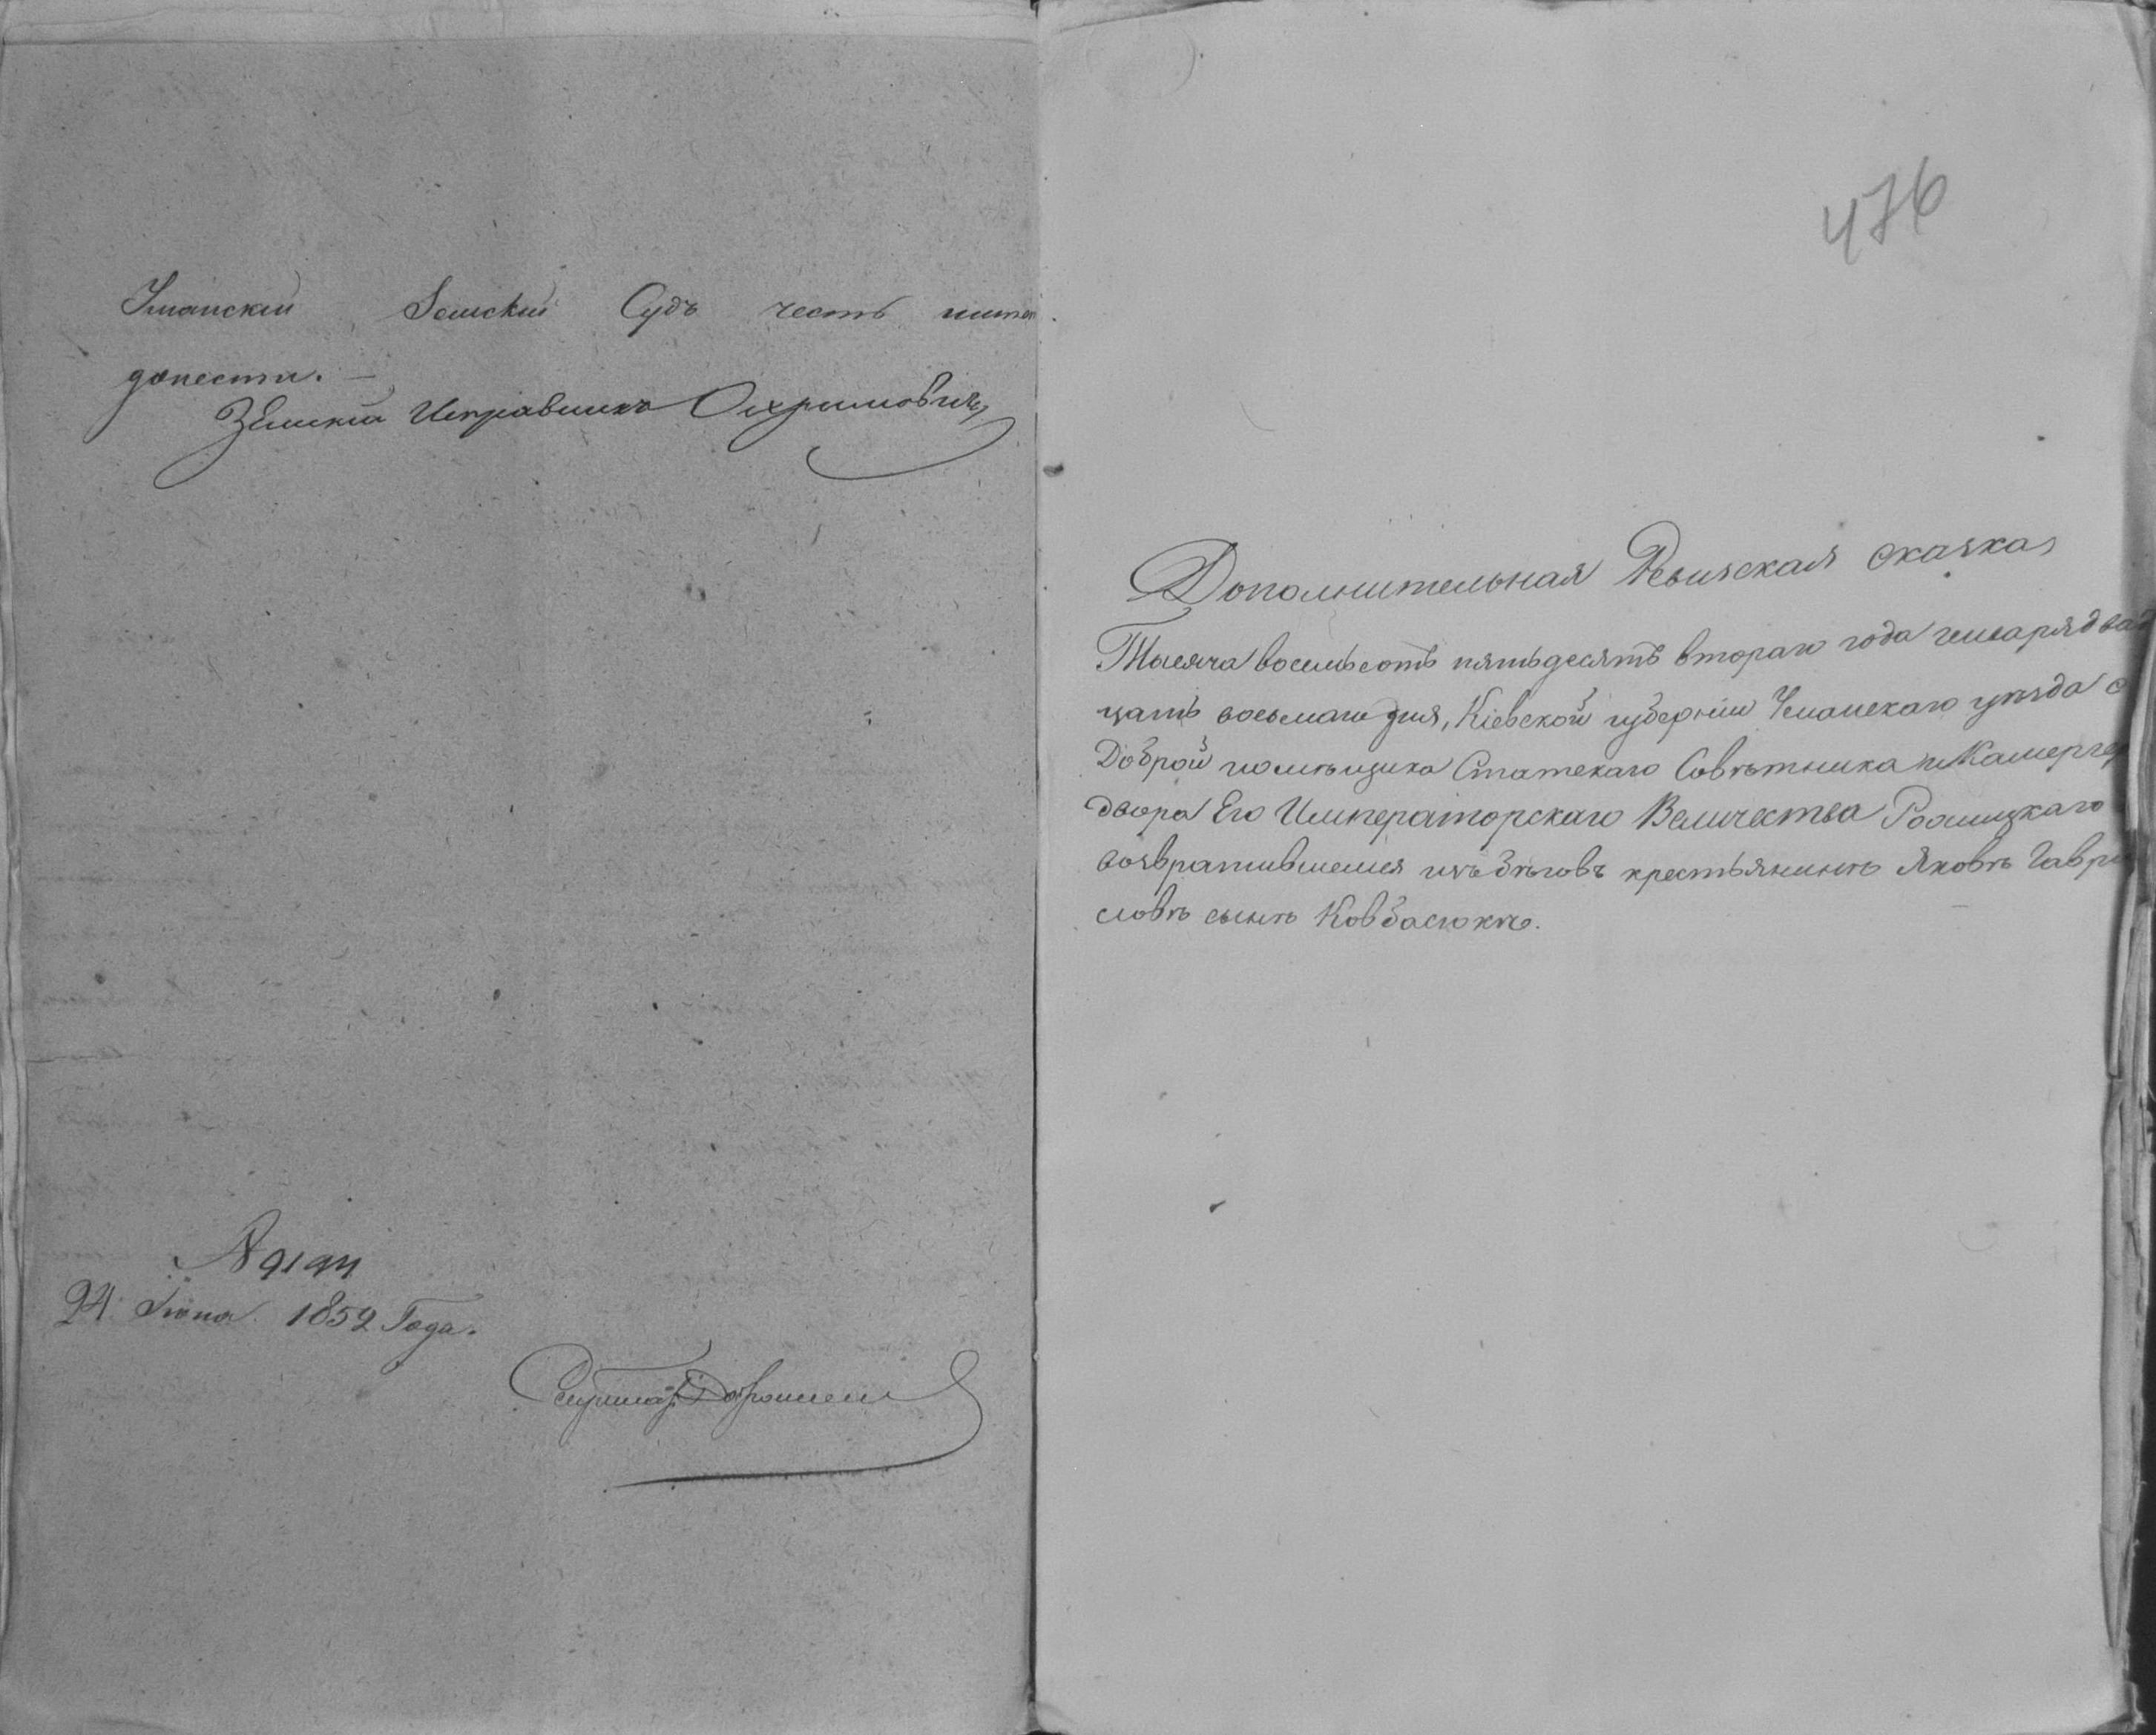 Уманский Земский Судъ честь имѣетъ
донести. —
Земский Исправникъ Охримовичъ
№ 9194
24. Іюня 1852 Года.
476
Дополнительная Ревизская сказка
Тысяча восемьсотъ пятьдесятъ втораго года генваря двад
цать восьмаго дня, Кіевской губерніи Уманскаго уѣзда с
Доброй помѣщика Статскаго Совѣтника и Камергер
двора Его Императорскаго Величества
возвратившемся изъ бѣговъ крестьянинѣ Яковѣ Гаври
ловѣ сынѣ Ковбасюкѣ.